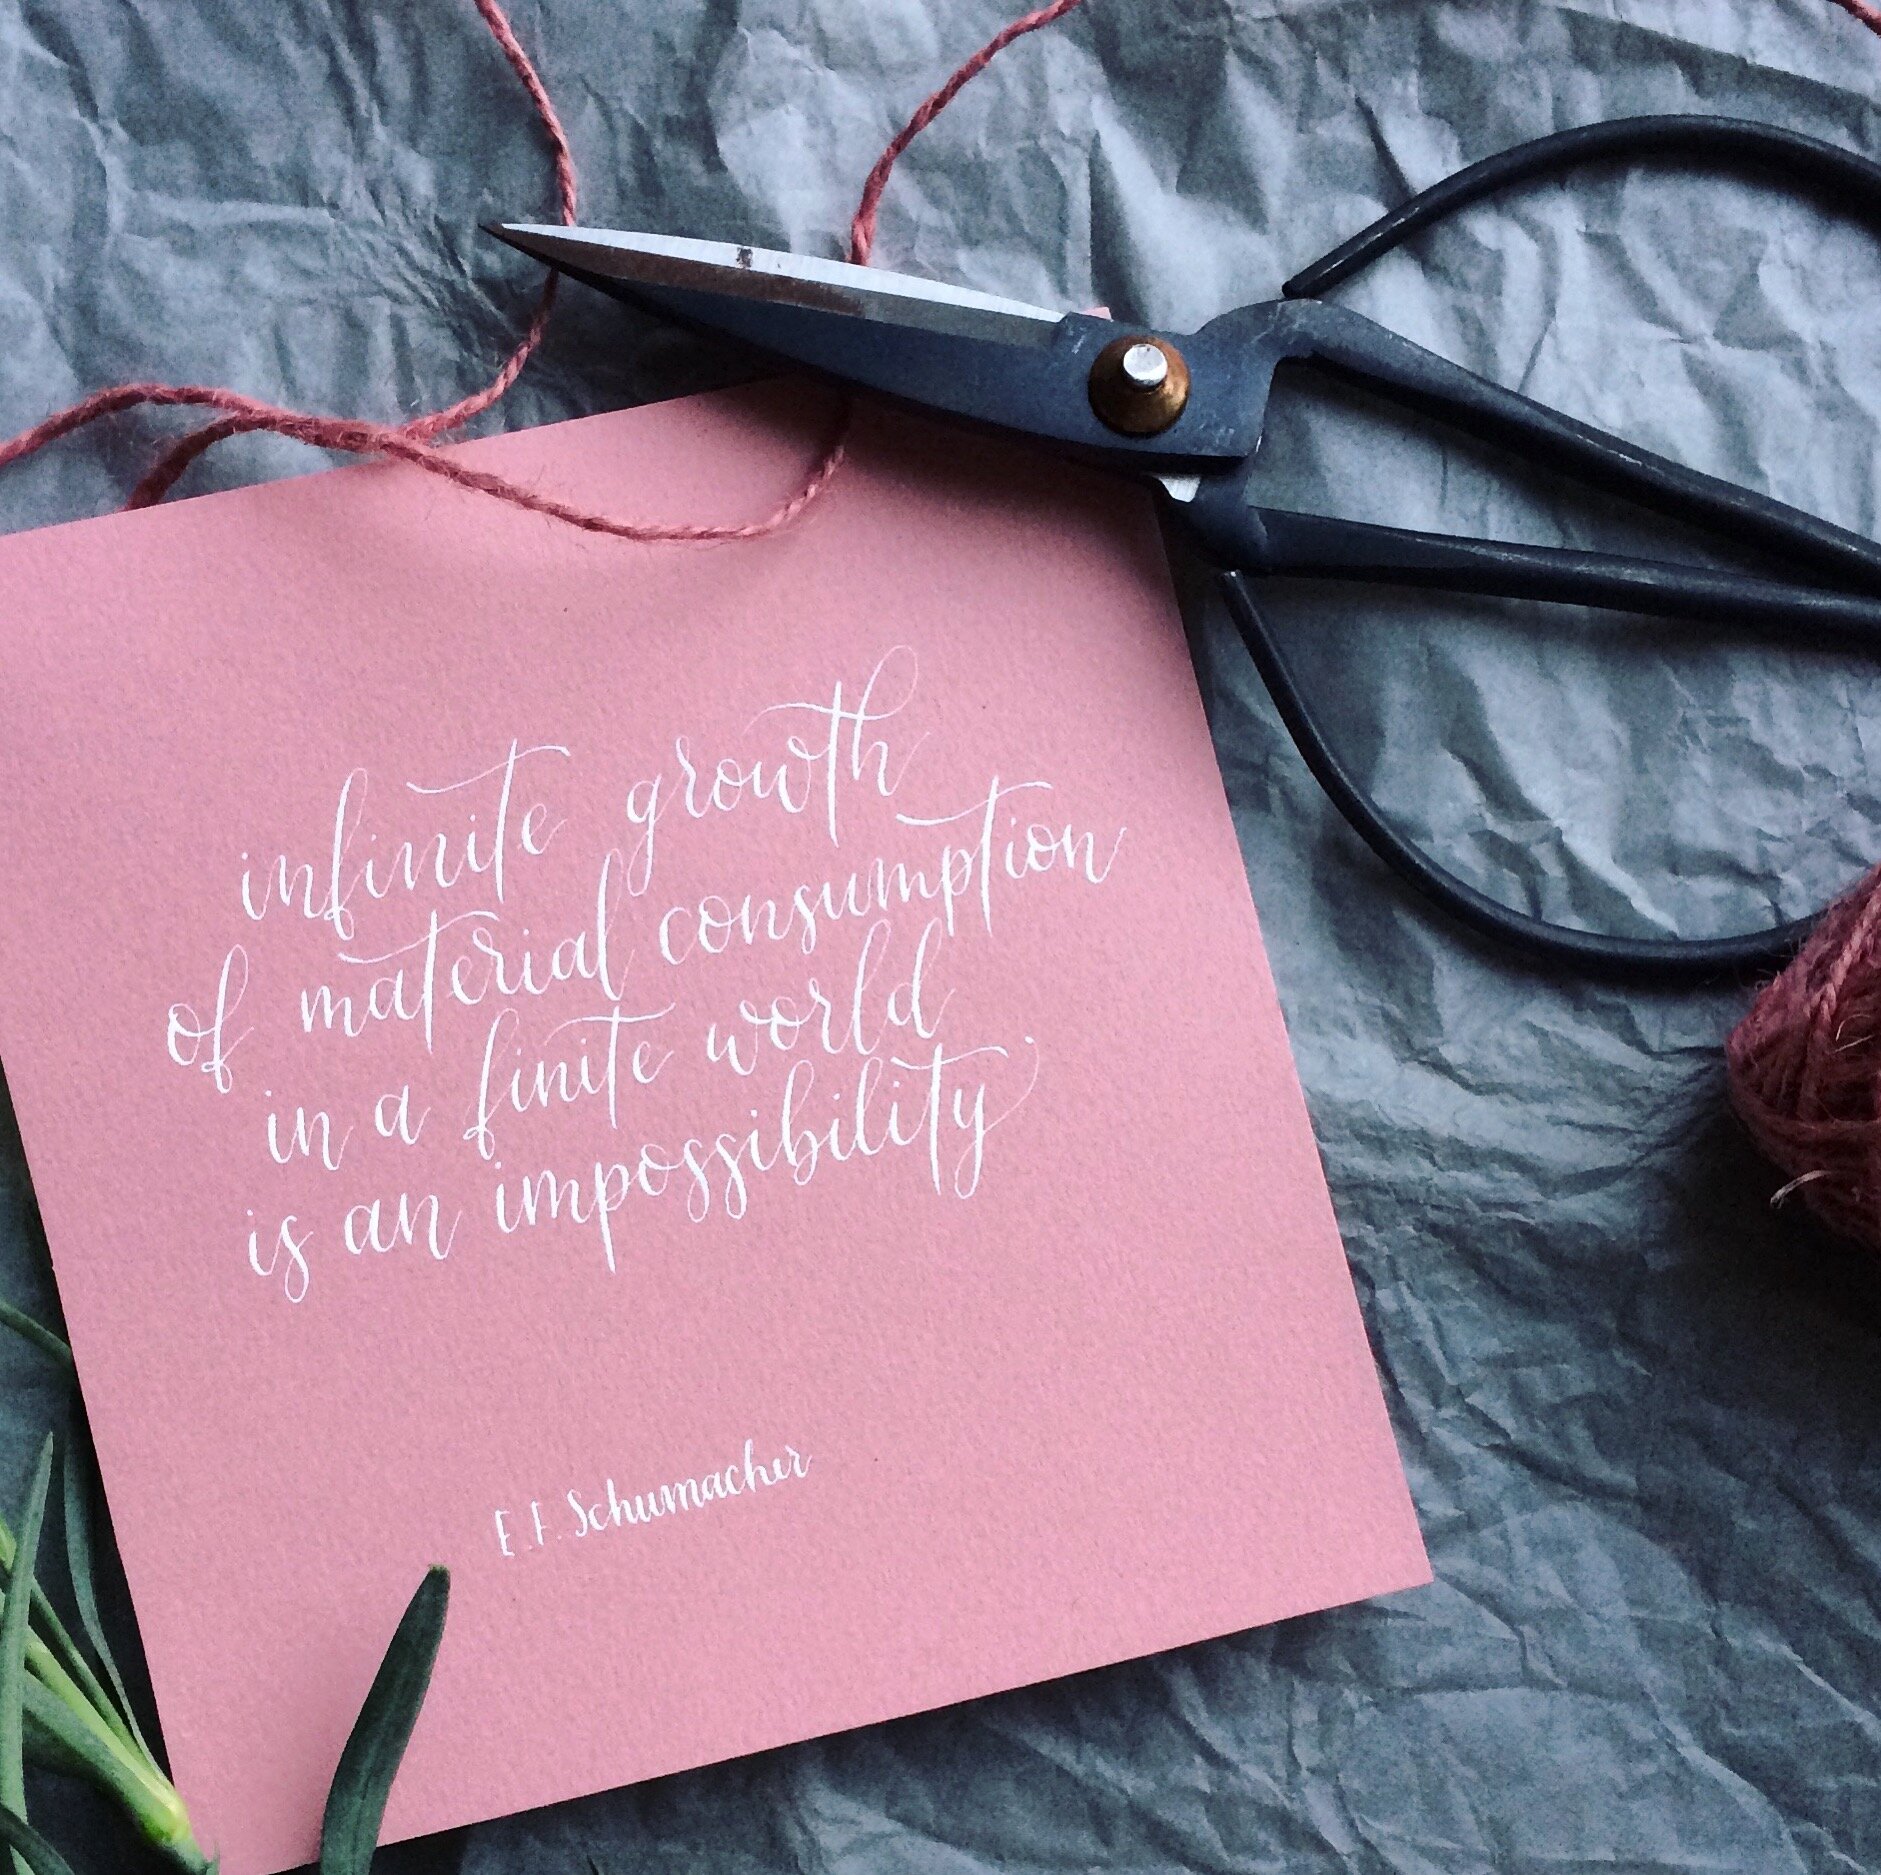 infinite growth
of material consumption
in a finite world
is an impossibility.
E. F. Schumacher